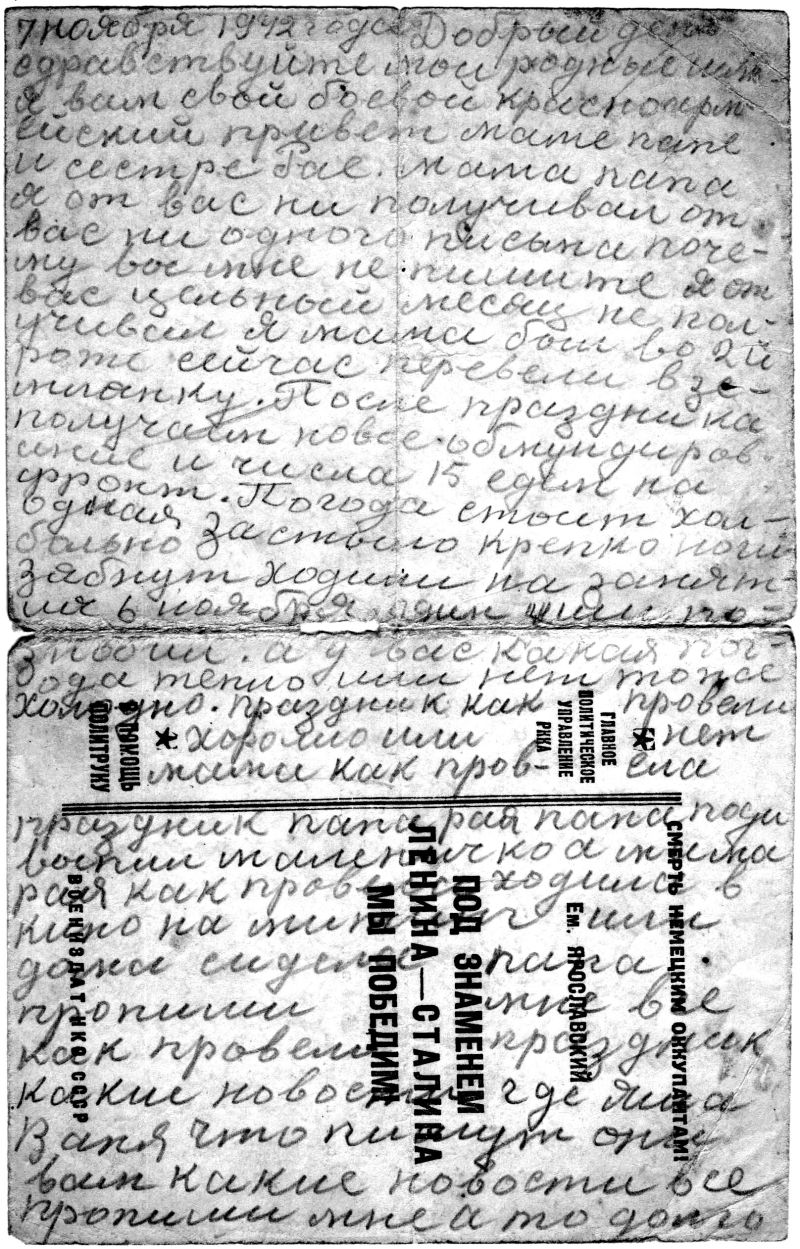 7 ноября 1942 года Добрый день
здравствуйте мои родные шлю
я вам свой боевой красноарм
ейский привет маме папе
и сестре Рае. мама папа
я от вас ни получивал от
вас ни одного письма поче-
му вы мне не пишите я от
вас цельный месяц не пол-
учивал я мама был во 2й
роте сейчас перевели в зе-
млянку. После праздника
получаим новое обмундиров-
ание и числа 15 едим на
фронт. Погода стоит хол-
одная
больно застыло крепко ноги
зябнут ходили на занят-
ия 6 ноября
а у вас какая пог-
ода тепло или нет тоже
холодно. праздник как провели
хорошо или нет
мама как пров- ела
праздник папа рая папа поди
выпил маленичко а мама
рая как провела ходила в
кино на митинг или
дома сидела папа
пропиши мне все
как провели праздник
какие новости где яша
Ваня что пишут они
вам какие новости все
пропиши мне а то долго
В ПОМОЩЬ
ПОЛИТРУКУ
ГЛАВНОЕ
ПОЛИТИЧЕСКОЕ
УПРАВЛЕНИЕ
РККА
СМЕРТЬ НЕМЕЦКИМ ОККУПАНТАМ!
Ем. ЯРОСЛАВСКИЙ
ПОД ЗНАМЕНЕМ
ЛЕНИНА—СТАЛИНА
МЫ ПОБЕДИМ!
ВОЕНИЗДАТ НКО СССР